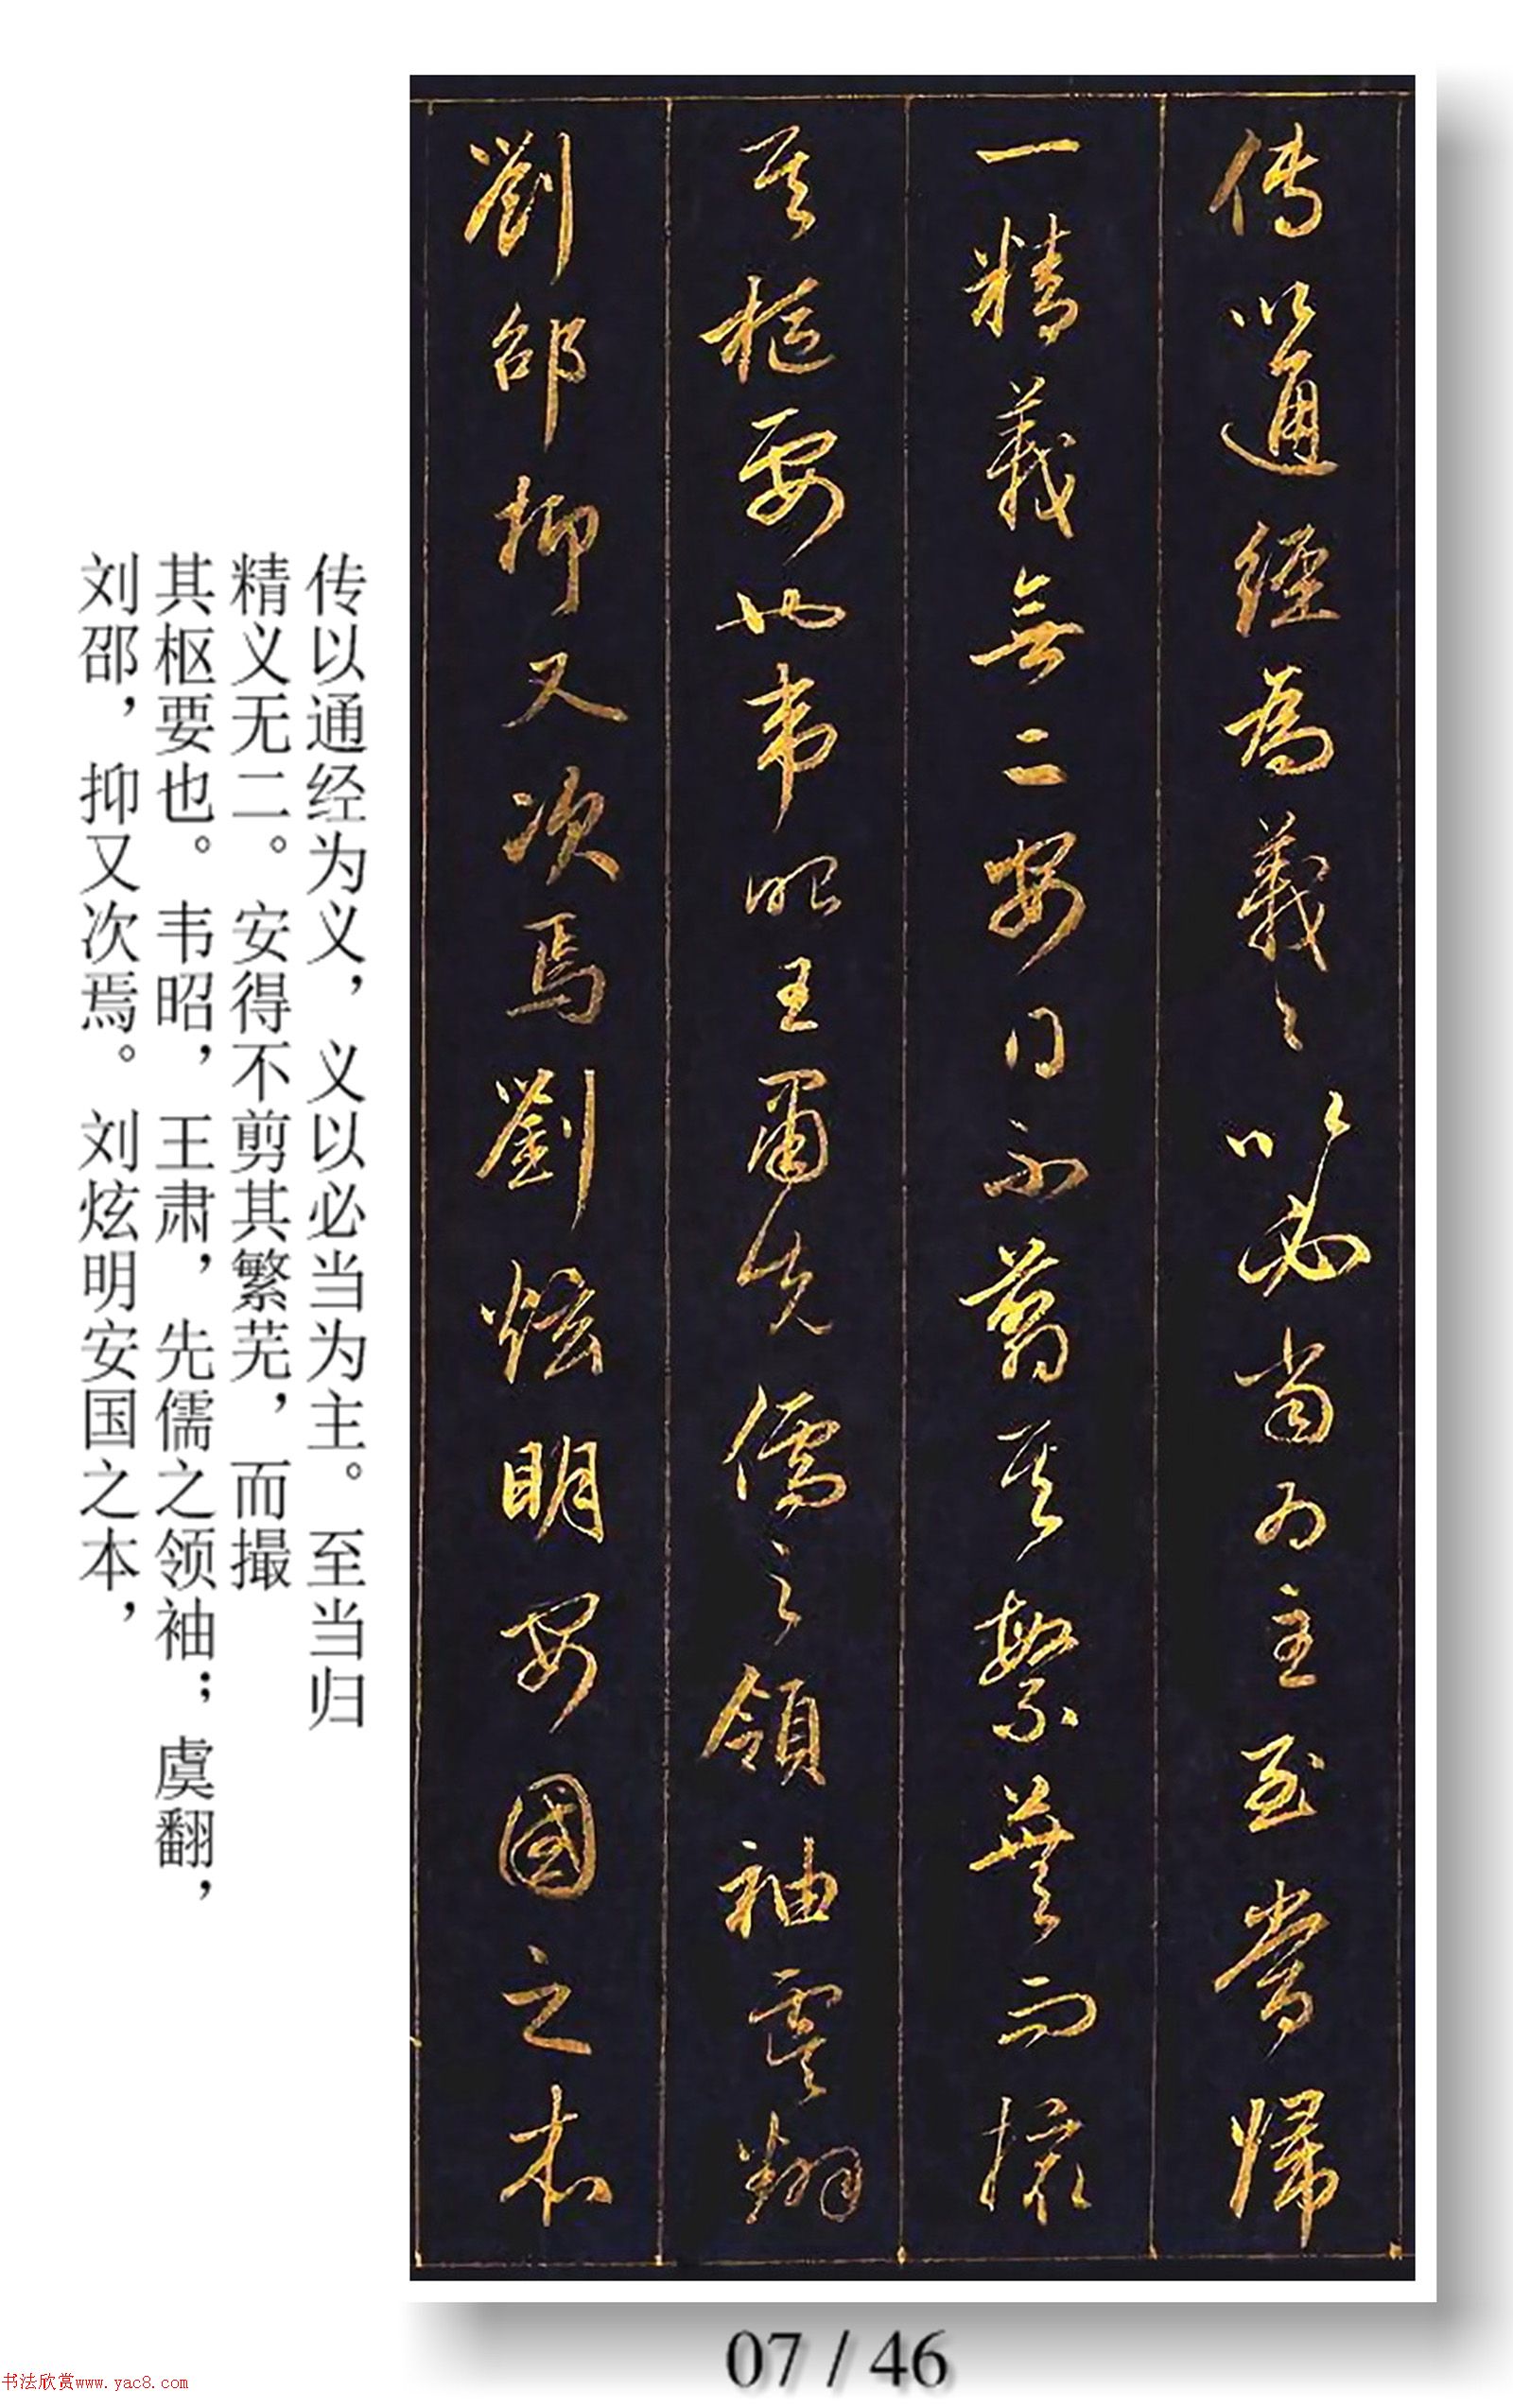 傳以通經為義々以必當為主至當歸
一精義無二安得不翦其繁蕪而撮
其樞要也韋昭王肅先儒之領袖虞翻
劉邵抑又次焉劉炫明安國之本
传以通经为义，义以必当为主。至当归
精义无二。安得不剪其繁芜，而撮
其枢要也。韦昭，王肃，先儒之领袖；虞翻，
刘邵，抑又次焉。刘炫明安国之本，
07 / 46
书法欣赏www.yac8.com